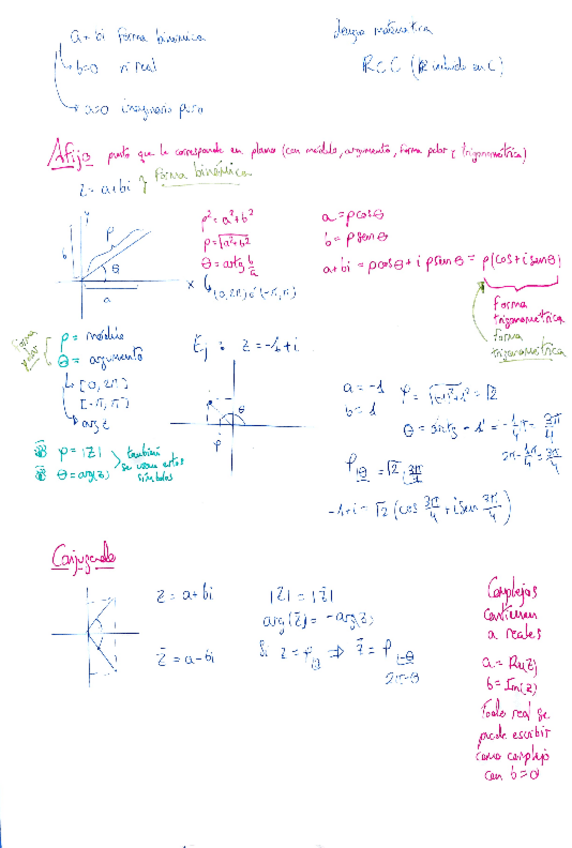 a + bi forma binómica
b=0 nº real
a=0 imaginario puro
lengua matemática
R⊂C (R incluido en C)
Afijo punto que le corresponde en plano (con módulo, argumento, forma polar y trigonométrica)
z = a+bi } forma binómica
y
b
ρ
θ
a
x
ρ² = a²+b²
ρ = √a²+b²
θ = artg b/a
a = ρcosθ
b = ρ senθ
a+bi = ρcosθ + i ρsenθ = ρ(cos+i senθ)
forma
trigonométrica
forma
trigonométrica
forma
polar
ρ = módulo
θ = argumento
[0, 2π]
[-π, π]
arg z
ρ = |z|
θ = arg(z)
también
se usan estos
símbolos
Ej: z = -1+i
ρ
θ
a = -1
b = 1
-1+i = √2 (cos 3π/4 + i sen 3π/4)
Conjugado
z = a+bi
z̄ = a-bi
|z| = |z̄|
arg(z̄) = -arg(z)
Si z = ρθ ⇒ z̄ = ρ-θ
2π-θ
Complejos
contienen
a reales
a = Re(z)
b = Im(z)
Todo real se
puede escribir
como complejo
con b=0